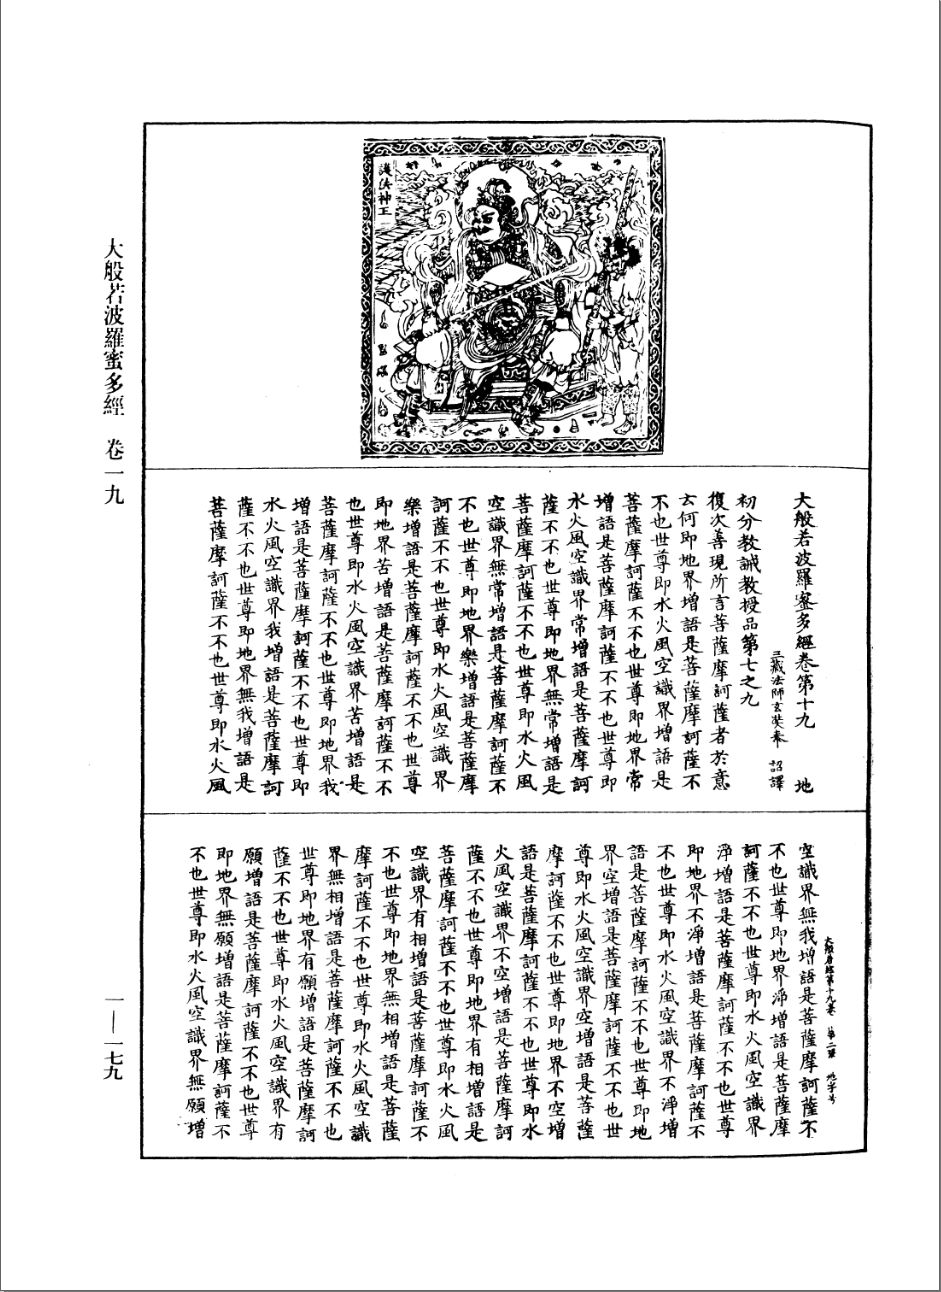 護法神王
大般若波羅蜜多經卷第十九 地
三藏法師玄奘奉 詔譯
初分教誡教授品第七之九
復次善現所言菩薩摩訶薩者於意
云何即地界增語是菩薩摩訶薩不
不也世尊即水火風空識界增語是
菩薩摩訶薩不不也世尊即地界常
增語是菩薩摩訶薩不不也世尊即
水火風空識界常增語是菩薩摩訶
薩不不也世尊即地界無常增語是
菩薩摩訶薩不不也世尊即水火風
空識界無常增語是菩薩摩訶薩不
不也世尊即地界樂增語是菩薩摩
訶薩不不也世尊即水火風空識界
樂增語是菩薩摩訶薩不不也世尊
即地界苦增語是菩薩摩訶薩不不
也世尊即水火風空識界苦增語是
菩薩摩訶薩不不也世尊即地界我
增語是菩薩摩訶薩不不也世尊即
水火風空識界我增語是菩薩摩訶
薩不不也世尊即地界無我增語是
菩薩摩訶薩不不也世尊即水火風
大般若經第十九卷 第二張 地字号
空識界無我增語是菩薩摩訶薩不
不也世尊即地界淨增語是菩薩摩
訶薩不不也世尊即水火風空識界
淨增語是菩薩摩訶薩不不也世尊
即地界不淨增語是菩薩摩訶薩不
不也世尊即水火風空識界不淨增
語是菩薩摩訶薩不不也世尊即地
界空增語是菩薩摩訶薩不不也世
尊即水火風空識界空增語是菩薩
摩訶薩不不也世尊即地界不空增
語是菩薩摩訶薩不不也世尊即水
火風空識界不空增語是菩薩摩訶
薩不不也世尊即地界有相增語是
菩薩摩訶薩不不也世尊即水火風
空識界有相增語是菩薩摩訶薩不
不也世尊即地界無相增語是菩薩
摩訶薩不不也世尊即水火風空識
界無相增語是菩薩摩訶薩不不也
世尊即地界有願增語是菩薩摩訶
薩不不也世尊即水火風空識界有
願增語是菩薩摩訶薩不不也世尊
即地界無願增語是菩薩摩訶薩不
不也世尊即水火風空識界無願增
大般若波羅蜜多經 卷一九
一—一七九